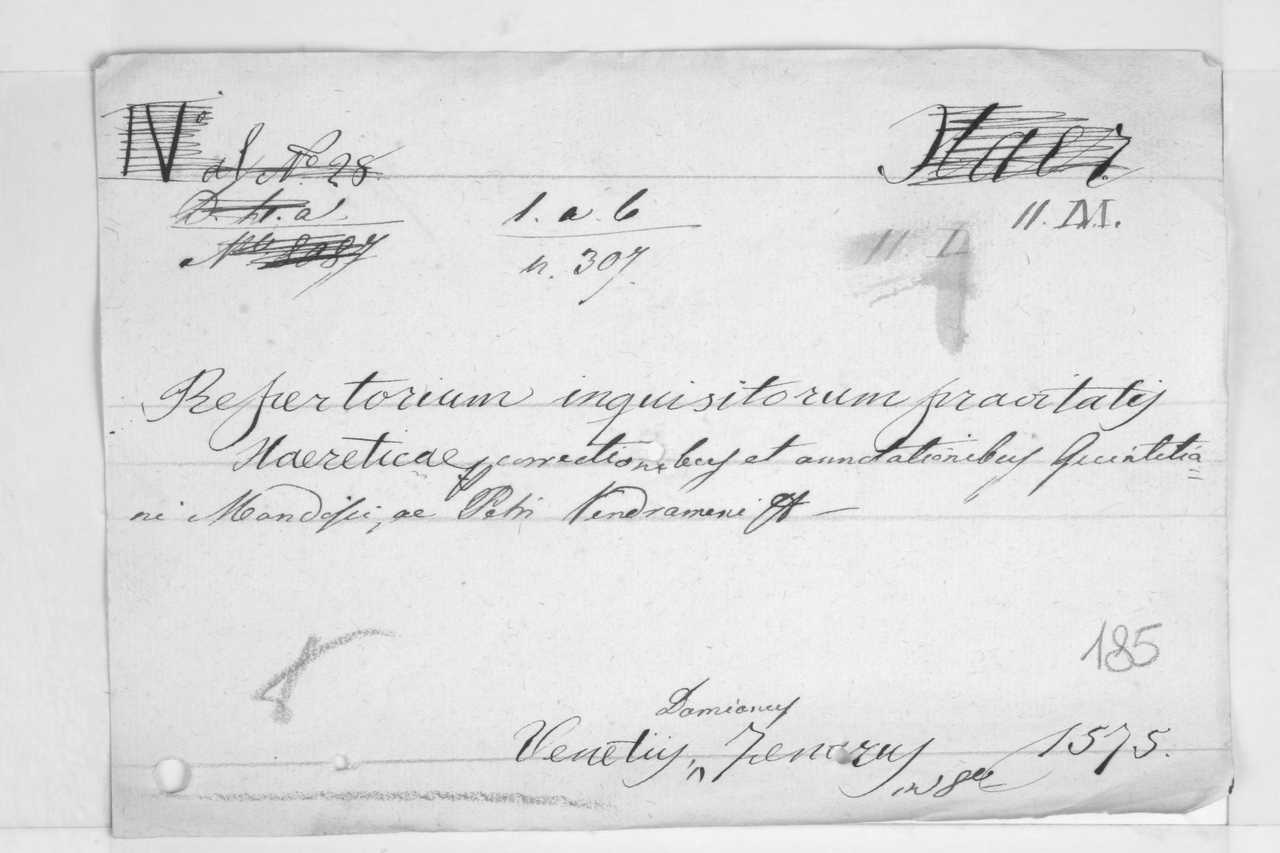 Nº Haer.
ad Nº 28
D. h. a 1. a. b 11. M.
Nº 8087 n. 307. 11. L
Repertorium inquisitorum pravitatis
Haereticae, correctionibus et annotationibus Quintilia=
ni Mandosii, ac Petri Vendrameni
185
Damianus
Venetiis, Zenarus 1575.
in 8º